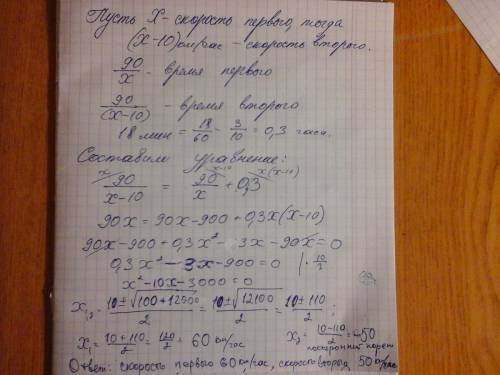 Пусть X - скорость первого, тогда
(x-10) км/час - скорость второго.
90/x - время первого
90/(x-10) - время второго
18 мин = 18/60 = 3/10 = 0,3 часа.
Составим уравнение:
x x-10 x(x-10)
90/(x-10) = 90/x + 0,3
90x = 90x - 900 + 0,3x(x-10)
90x - 900 + 0,3x² - 3x - 90x = 0
0,3x² - 3x - 900 = 0 | · 10/3
x² - 10x - 3000 = 0
x₁,₂ = (10 ± √(100+12000))/2 = (10 ± √12100)/2 = (10 ± 110)/2 ;
x₁ = (10+110)/2 = 120/2 = 60 км/час x₂ = (10-110)/2 = -50
посторонний корень
Ответ: скорость первого 60 км/час, скорость второго, 50 км/час